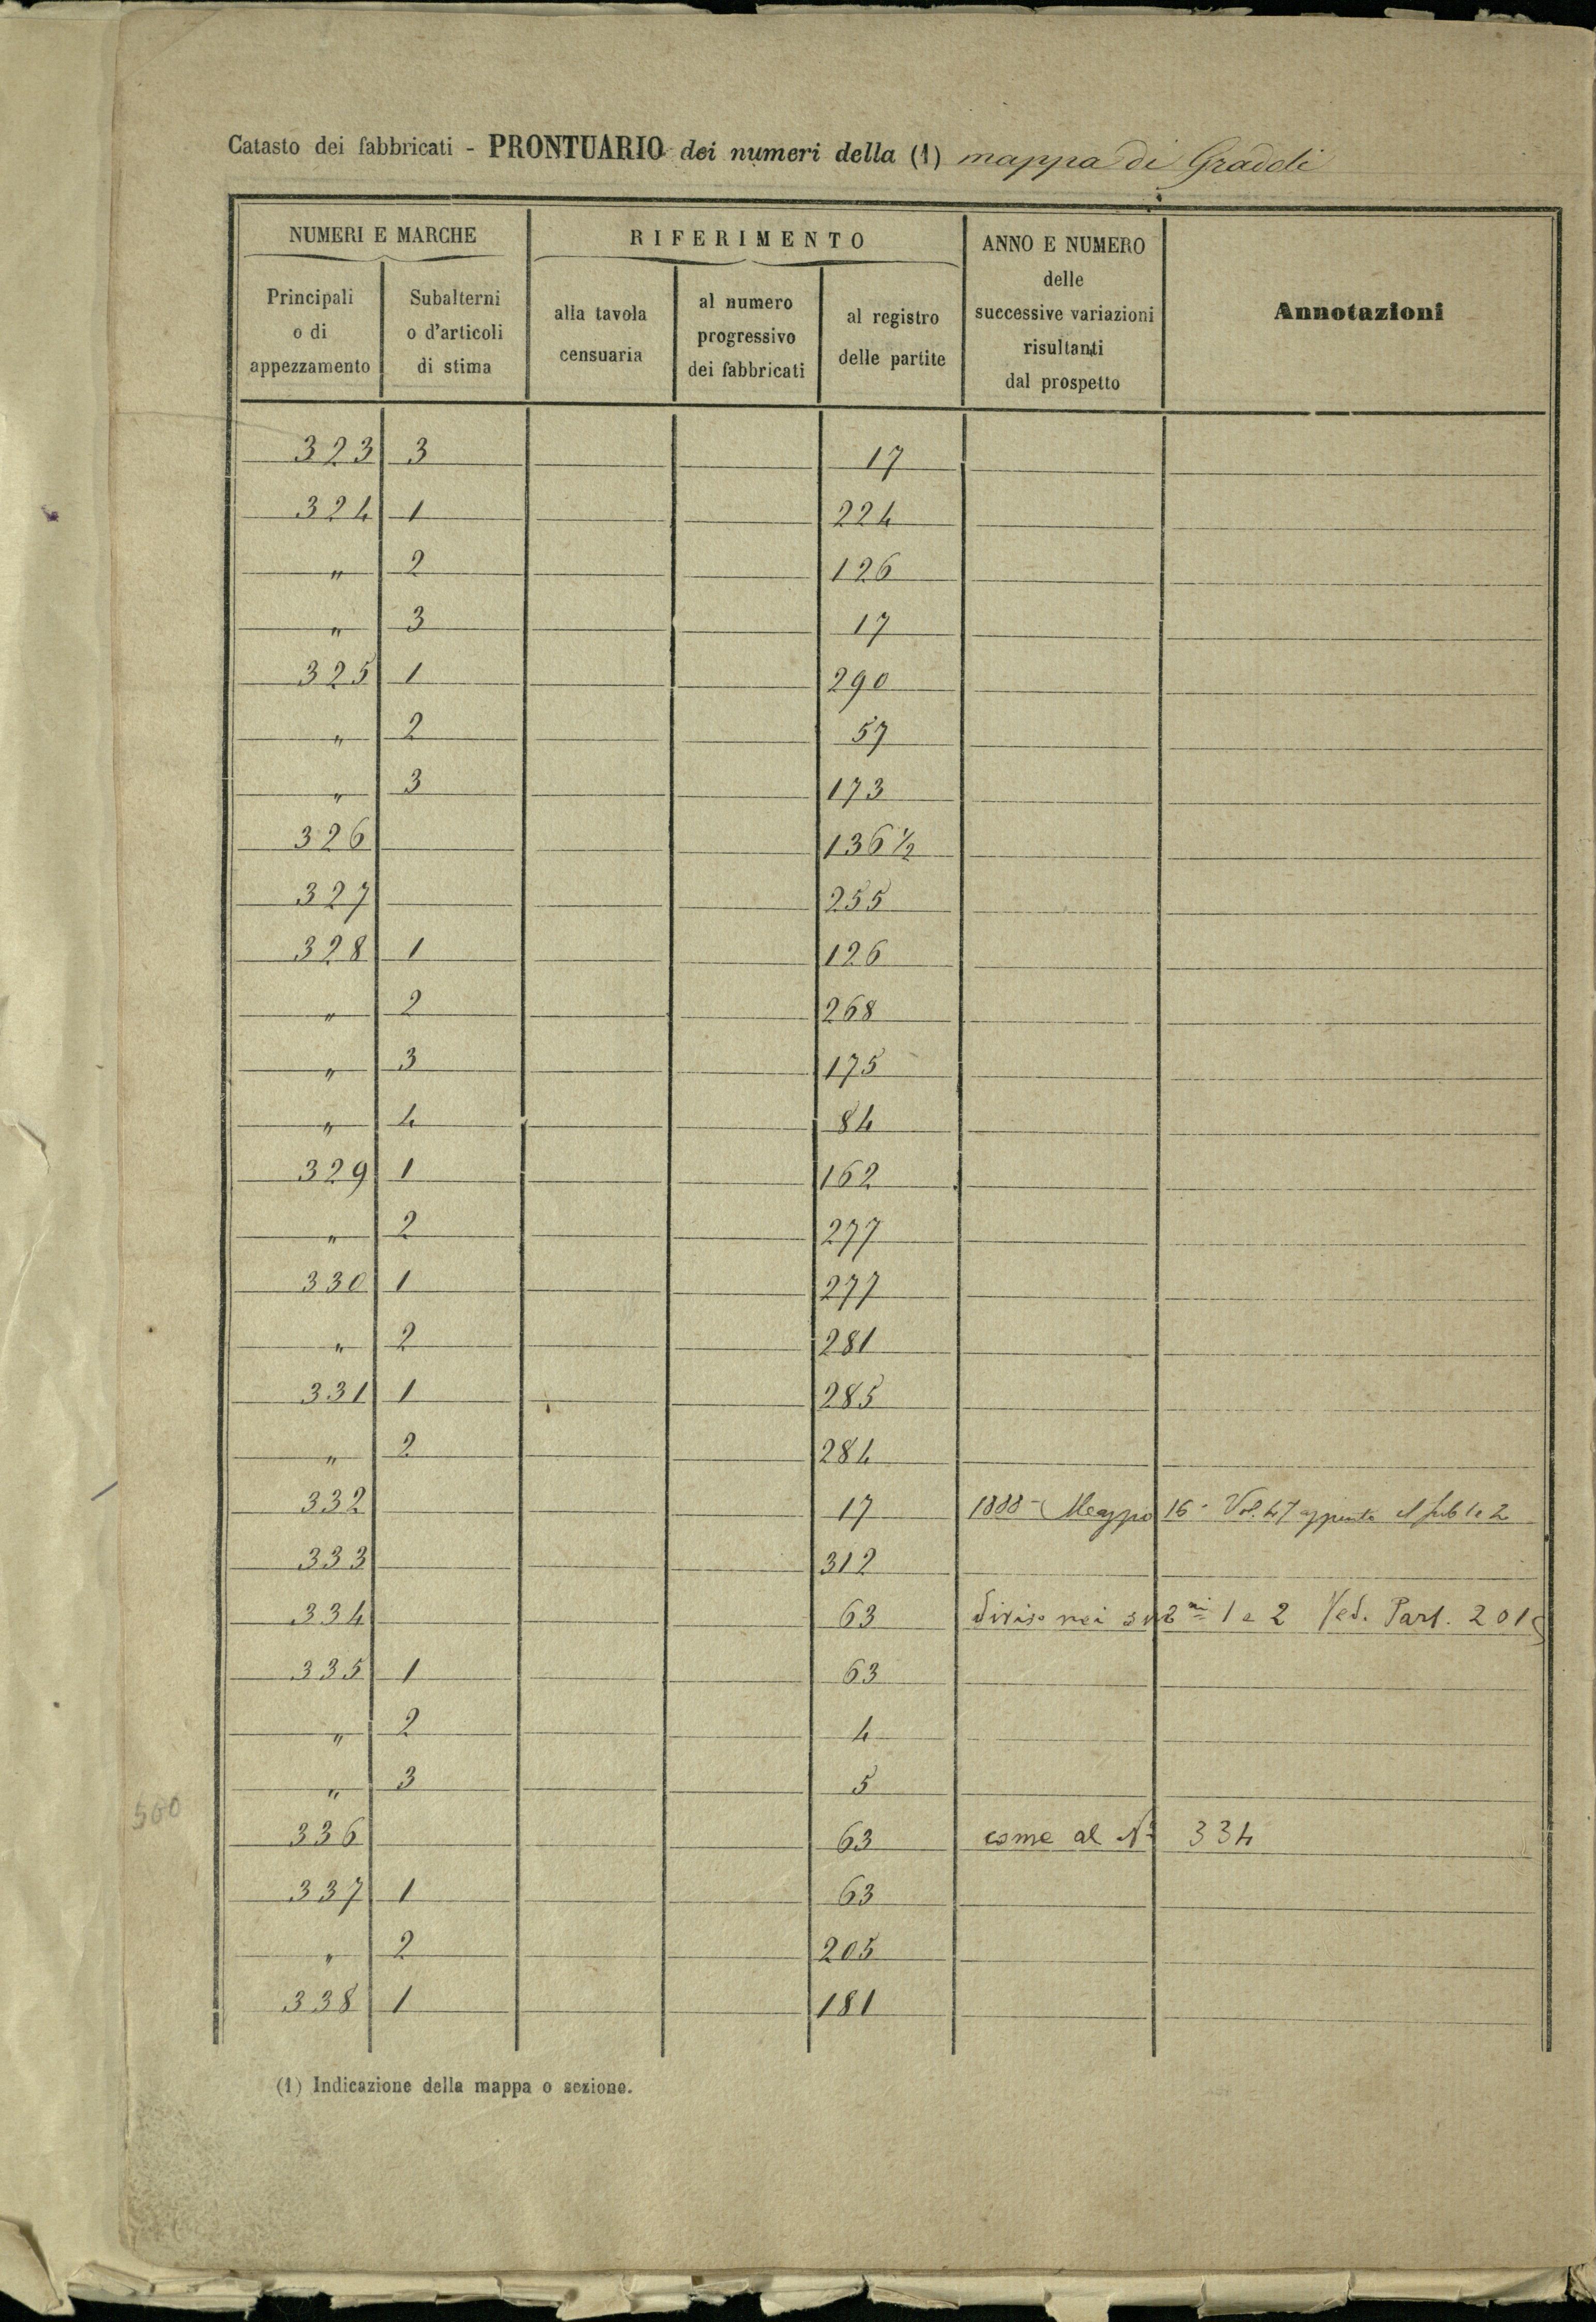 Catasto dei fabbricati - PRONTUARIO dei numeri della (1) mappa di Gradoli
NUMERI E MARCHE
RIFERIMENTO
ANNO E NUMERO
delle
successive variazioni
risultanti
dal prospetto
Annotazioni
Principali
o di
appezzamento
Subalterni
o d'articoli
di stima
alla tavola
censuaria
al numero
progressivo
dei fabbricati
al registro
delle partite
323 3 17
324 1 224
" 2 126
" 3 17
325 1 290
" 2 57
" 3 173
326 136 ½
327 255
328 1 126
" 2 268
" 3 175
" 4 84
329 1 162
" 2 277
330 1 277
" 2 281
331 1 285
" 2 284
332 17 1888 - Maggio 16 - Vol. 47 sub 1 e 2
333 312
334 63 diviso nei subni 1 e 2 Ved. Part. 201
335 1 63
" 2 4
" 3 5
500
336 63 come al No 334
337 1 63
" 2 205
338 1 181
(1) Indicazione della mappa o sezione.